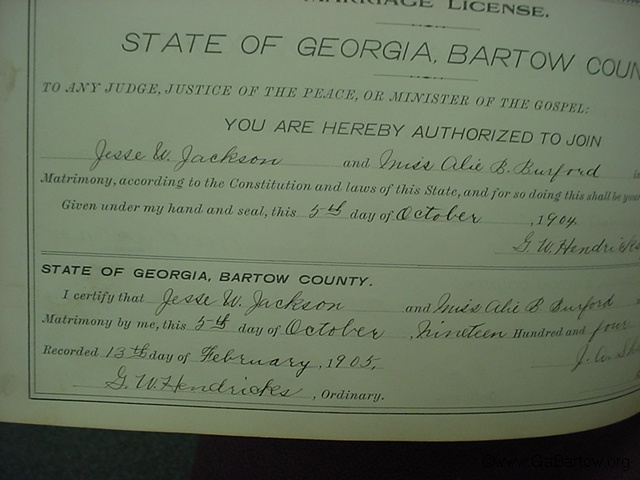 MARRIAGE LICENSE.
STATE OF GEORGIA, BARTOW COUN
TO ANY JUDGE, JUSTICE OF THE PEACE, OR MINISTER OF THE GOSPEL:
YOU ARE HEREBY AUTHORIZED TO JOIN
Jesse W. Jackson and Miss Alie B. Burford
Matrimony, according to the Constitution and laws of this State, and for so doing this shall be your
Given under my hand and seal, this 5th day of October, 1904
G. W. Hendricks
STATE OF GEORGIA, BARTOW COUNTY.
I certify that Jesse W. Jackson and Miss Alie B Burford
Matrimony by me, this 5th day of October, Nineteen Hundred and four
Recorded 13th day of February, 1905.
G. W. Hendricks, Ordinary.
www.GaBartow.org